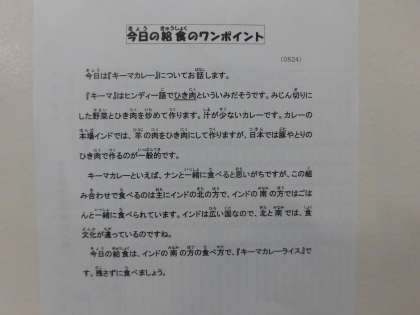 今日の給食のワンポイント
(0524)
今日は『キーマカレー』についてお話します。
『キーマ』はヒンディー語でひき肉といういみだそうです。みじん切りに
した野菜とひき肉を炒めて作ります。汁が少ないカレーです。カレーの
本場インドでは、羊の肉をひき肉にして作りますが、日本では豚やとりの
ひき肉で作るのが一般的です。
キーマカレーといえば、ナンと一緒に食べると思いがちですが、この組
み合わせで食べるのは主にインドの北の方で、インドの南の方ではごは
んと一緒に食べられています。インドは広い国なので、北と南では、食
文化が違っているのですね。
今日の給食は、インドの南の方の食べ方で、『キーマカレーライス』で
す。残さずに食べましょう。